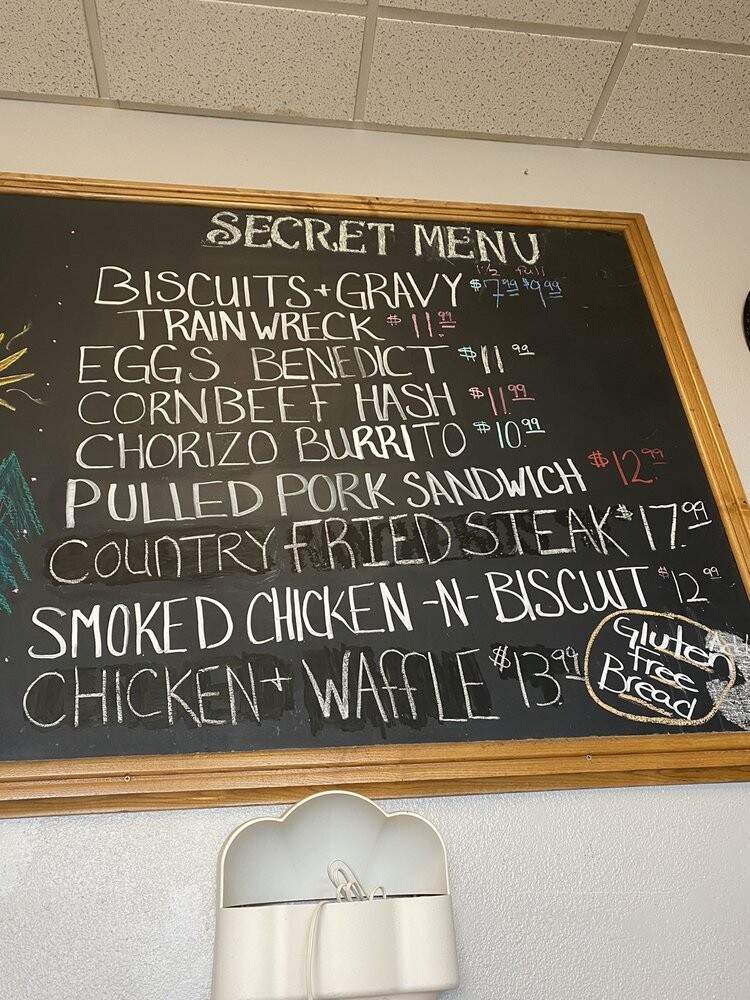 SECRET MENU
1/2 Full
BISCUITS + GRAVY $7.99 $9.99
TRAINWRECK $11.99
EGGS BENEDICT $11.99
CORNBEEF HASH $11.99
CHORIZO BURRITO $10.99
PULLED PORK SANDWICH $12.99
COUNTRY FRIED STEAK $17.99
SMOKED CHICKEN -N- BISCUIT $12.99
CHICKEN + WAFFLE $13.99
Gluten
free
Bread